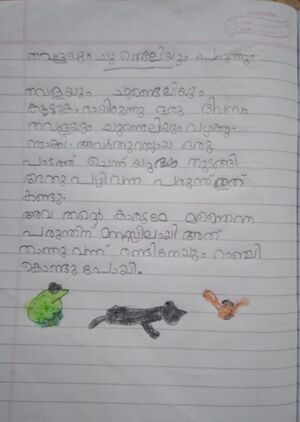 തവളയും ചുണ്ടെലിയും പരുന്തും
തവളയും ചുണ്ടെലിയും
കൂട്ടുകാരായിരുന്നു ഒരു ദിവസം
തവളയും ചുണ്ടെലിയും വഴക്കു-
ണ്ടാക്കി അവർതുറസ്സായ ഒരു
പാടത്ത് ചെന്ന് യുദ്ധം തുടങ്ങി
അതുവഴി വന്ന പരുന്ത് ഇത്
കണ്ടു.
അവ തന്റെ കാര്യമേ
പരുന്തിന് മനസ്സിലായി അത്
താണു വന്ന് രണ്ടിനേയും റാഞ്ചി
കൊണ്ടു പോയി.